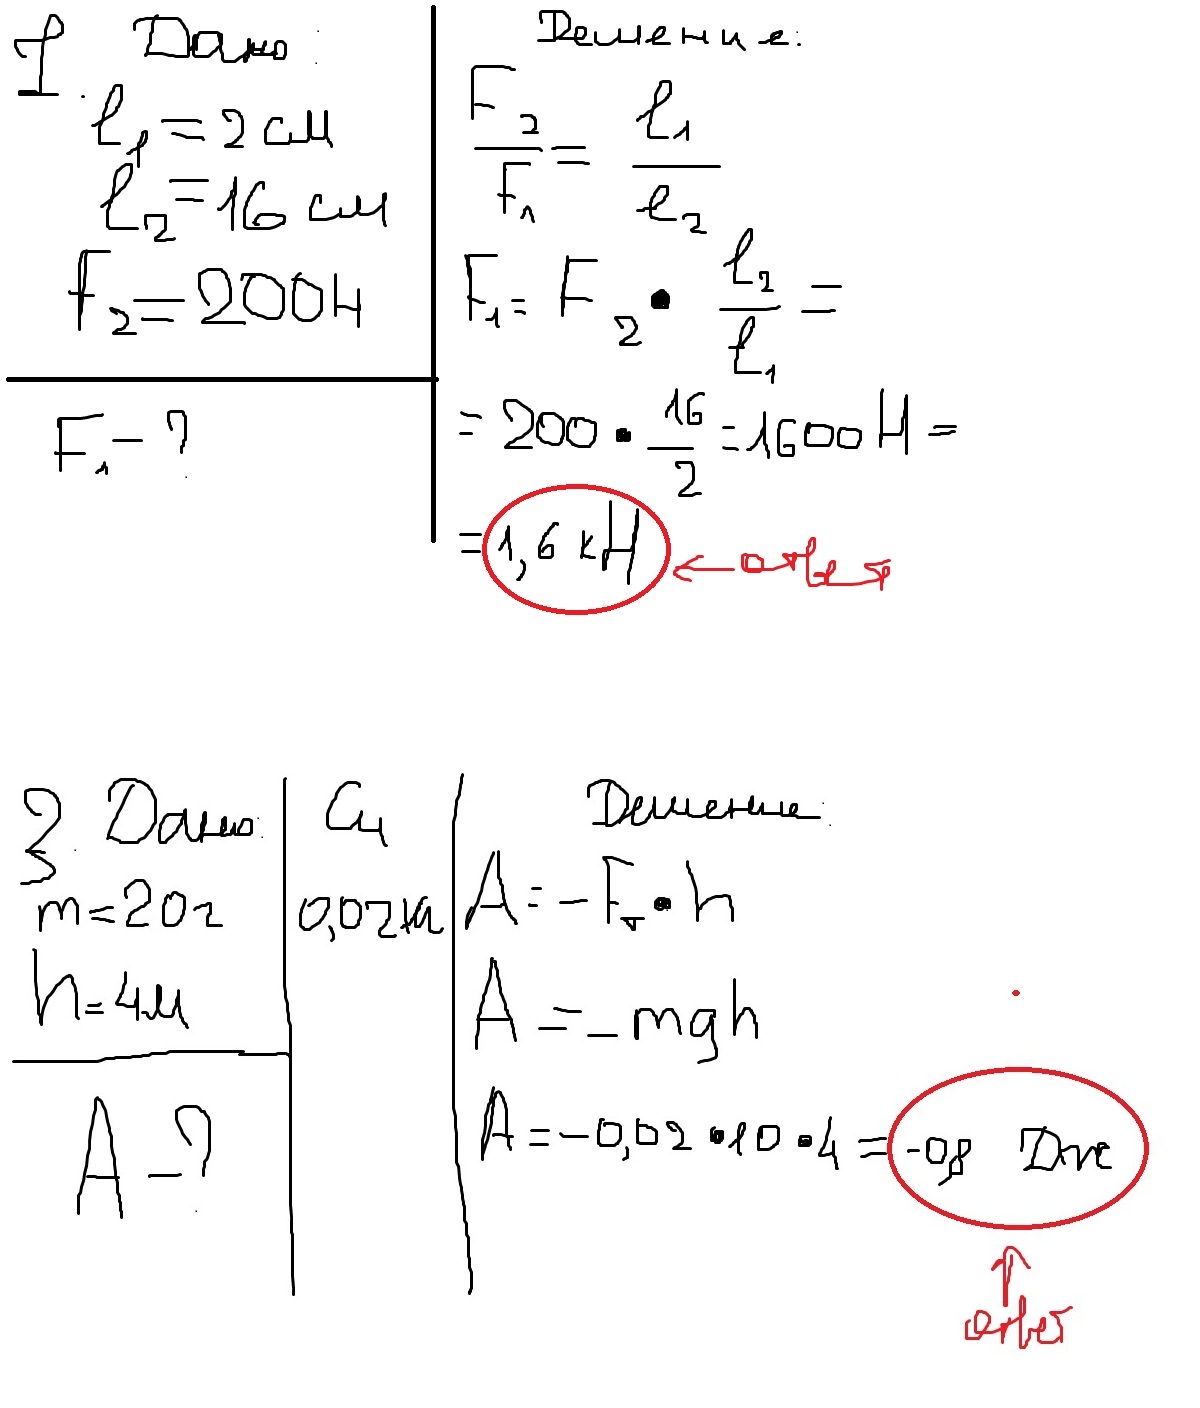 1. Дано:
l₁ = 2 см
l₂ = 16 см
F₂ = 200 Н
F₁ - ?
Решение:
F₂/F₁ = l₁/l₂
F₁ = F₂ · l₂/l₁ =
= 200 · 16/2 = 1600 Н =
= 1,6 кН ← ответ
3. Дано:
m = 20 г
h = 4 м
A - ?
Си
0,02 кг
Решение:
A = - Fт · h
A = - mgh
A = -0,02 · 10 · 4 = -0,8 Дж
ответ